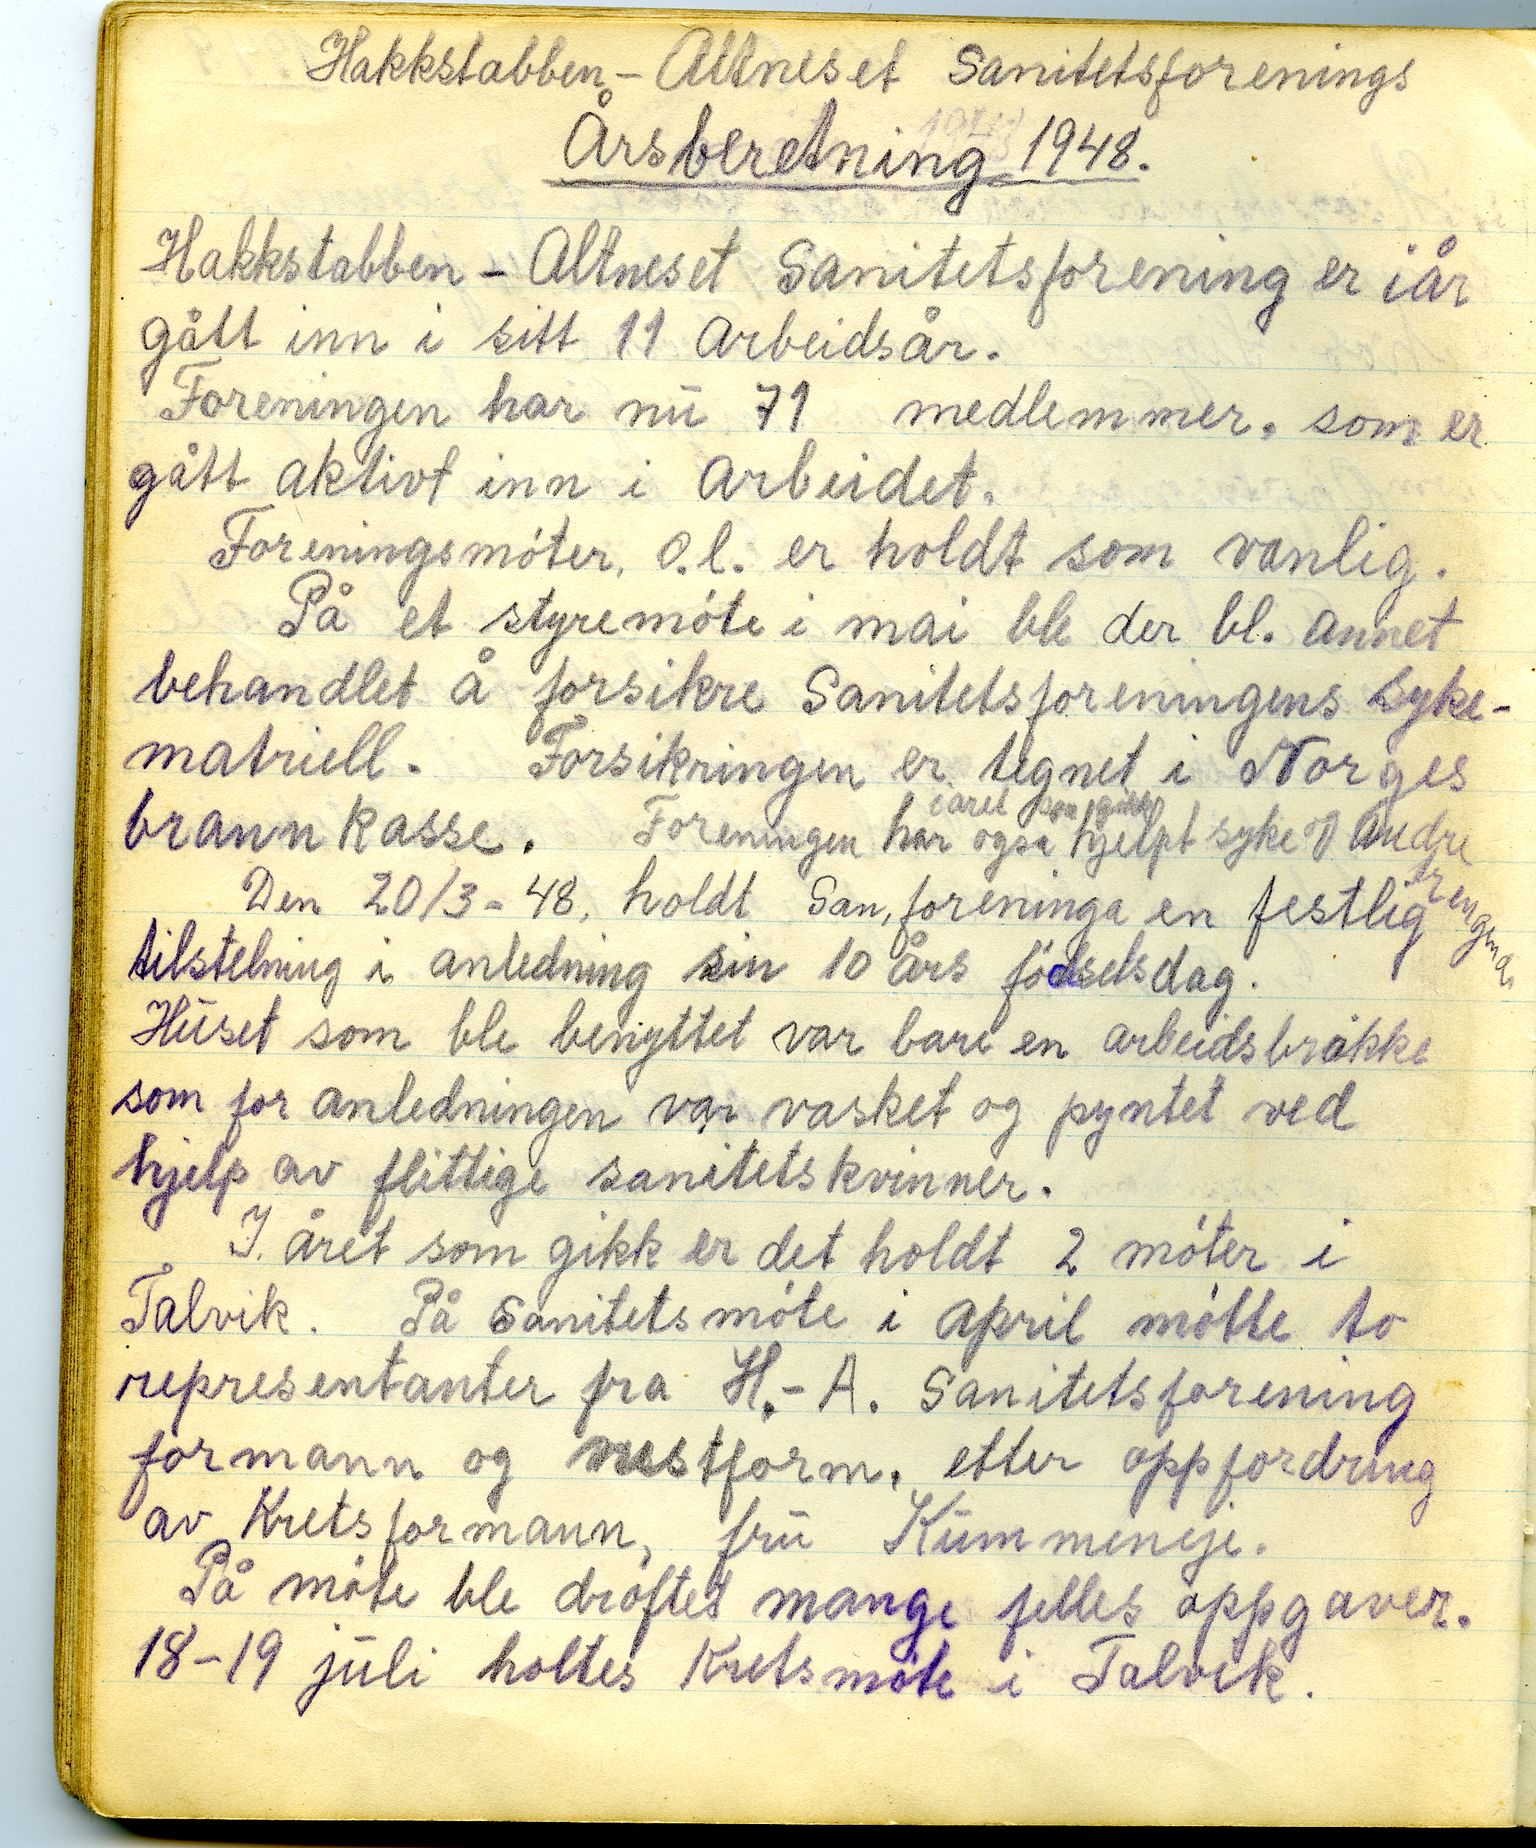 Hakkstabben - Altneset Sanitetsforenings
Årsberetning 1948.
Hakkstabben - Altneset Sanitetsforening er iår
gått inn i sitt 11 arbeidsår.
Foreningen har nu 71 medlemmer. som er
gått aktivt inn i arbeidet.
Foreningsmóter, o.l. er holdt som vanlig.
På et styremóte i mai ble der bl. annet
behandlet å forsikre Sanitetsforeningens syke-
matriell. Forsikringen er tegnet i Norges
iåret som gikk
brannkasse. Foreningen har også hjelpt syke og andre
trengende.
Den 20/3-48, holdt San,foreninga en festlig
tilstelning i anledning sin 10 års fódselsdag.
Huset som ble benyttet var bare en arbeidsbrakke
som for anledningen var vasket og pyntet ved
hjelp av flittige sanitetskvinner.
I. året som gikk er det holdt 2 móter i
Talvik. På Sanitetsmóte i april mótte to
representanter fra H.-A. Sanitetsforening
formann og nestform, etter oppfordring
av Kretsformann, fru Kummeneje.
På móte ble dróftet mange felles oppgaver.
18-19 juli holtes Kretsmóte i Talvik.